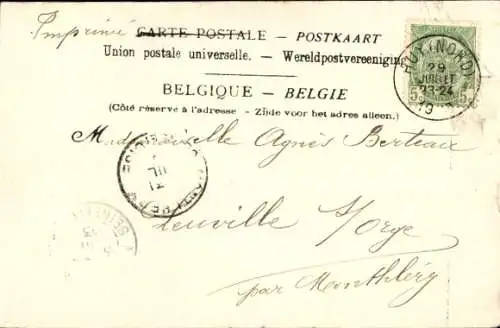 Imprimé
CARTE POSTALE – POSTKAART
Union postale universelle. – Wereldpostvereeniging
BELGIQUE – BELGIE
(Côté réservé à l'adresse – Zijde voor het adres alleen.)
HUY (NORD)
29
JUILLET
23-24
19
5
Mademoiselle Agnès Berteau
Leuville S/ Orge
par Monthléry